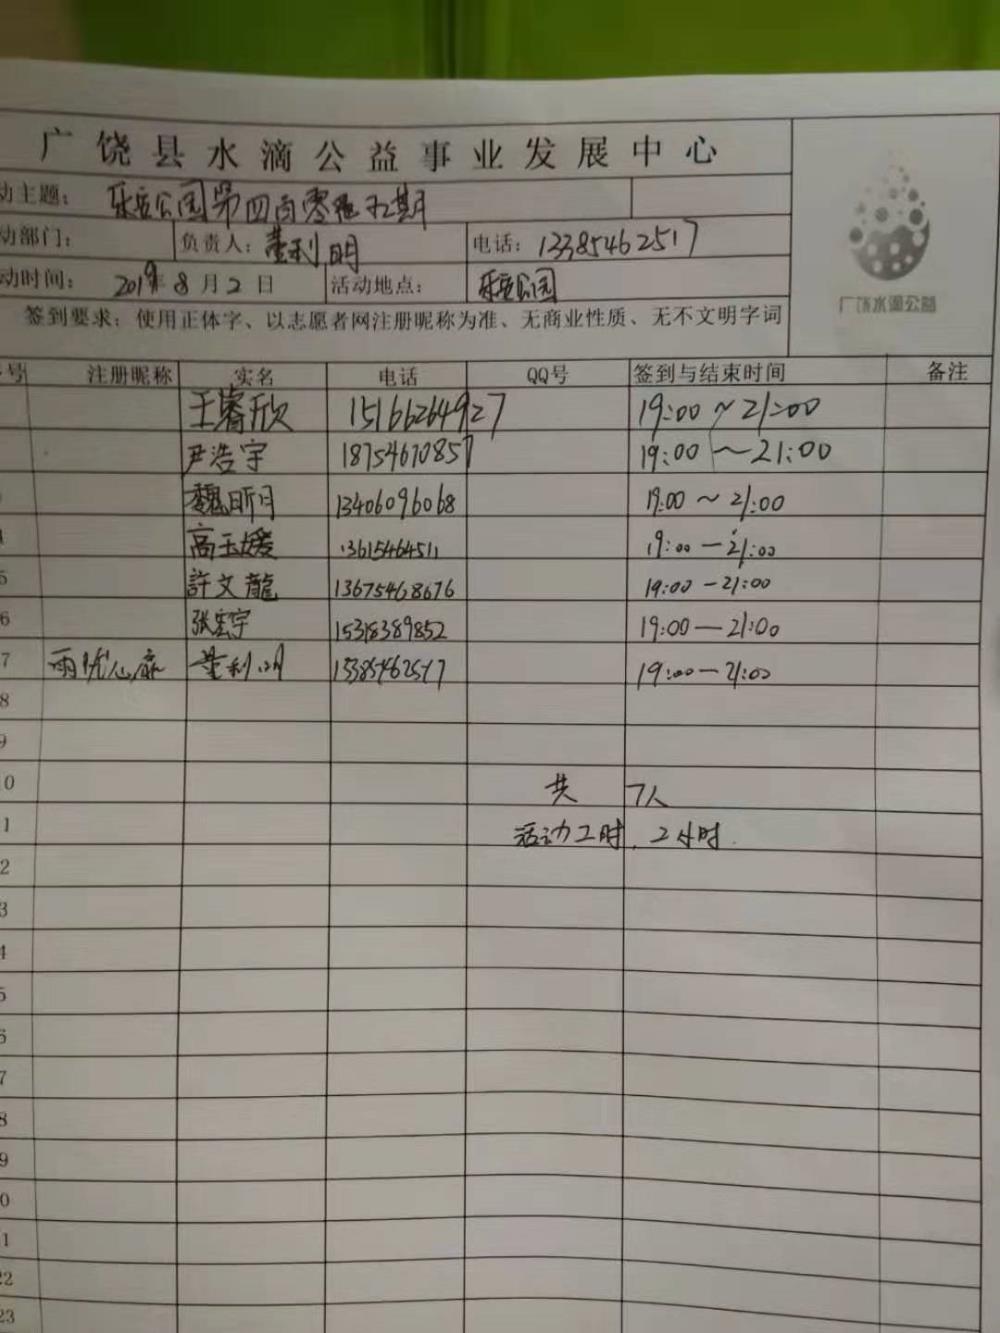 广饶县水滴公益事业发展中心
动主题： 乐安公园第四百零 五期
动部门： 负责人：董利明 电话：13385462517
动时间： 2019年8月2日 活动地点： 乐安公园
签到要求：使用正体字、以志愿者网注册昵称为准、无商业性质、无不文明字词
广饶水滴公益
号 注册昵称 实名 电话 QQ号 签到与结束时间 备注
王睿欣 15166264927 19:00～21:00
尹浩宇 18754670857 19:00～21:00
魏昕月 13406096068 19:00～21:00
高玉媛 13615464511 19:00—21:00
5 許文龍 13675468676 19:00-21:00
6 张宏宇 15318389852 19:00—21:00
7 雨 心 董利明 19:00—21:00
8
9
0 共 7人
1 活动工时, 2小时.
2
3
4
5
6
7
8
9
0
1
22
23